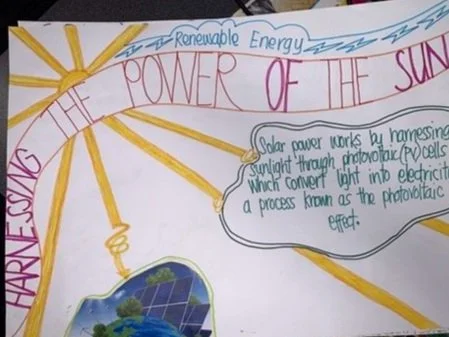 Renewable Energy
HARNESSING THE POWER OF THE SUN
Solar power works by harnessing
sunlight through photovoltaic (PV) cells
which convert light into electricit
a process known as the photovoltaic
effect.